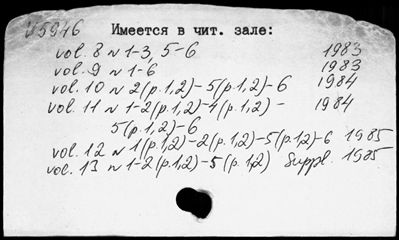 и5946 Имеется в чит. зале:
vol. 8 N 1-3, 5-6 1983
vol. 9 N 1-6 1983
vol. 10 N 2(p.1,2)-5(p.1,2)-6 1984
vol. 11 N 1-2(p.1,2)-4(p.1,2)- 1984
5(p.1,2)-6
vol. 12 N 1(p.1,2)-2(p.1,2)-5(p.1,2)-6 1985
vol. 13 N 1-2(p.1,2)-5(p.1,2) Suppl. 1985